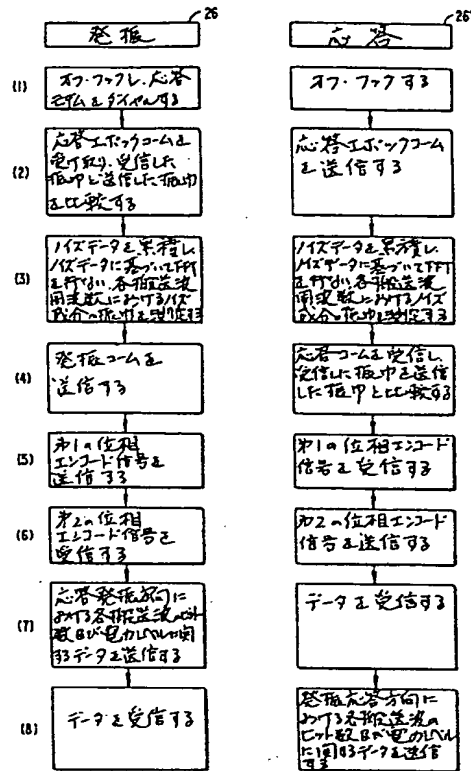 26
発振
(1)
オフ・フックし、応答
モデムをダイヤルする
(2)
応答エポックコームを
受け取り、受信した
振巾と送信した振巾
を比較する
(3)
ノイズデータを累積し、
ノイズデータに基づいてFFT
を行ない、各搬送波
周波数におけるノイズ
成分の振巾を決定する
(4)
発振コームを
送信する
(5)
第1の位相
エンコード信号を
送信する
(6)
第2の位相
エンコード信号を
受信する
(7)
応答発振方向に
おける各搬送波のビット
数及び電力レベルに関
するデータを送信する
(8)
データを受信する
26
応答
オフ・フックする
応答エポックコーム
を送信する
ノイズデータを累積し、
ノイズデータに基づいてFFT
を行ない、各搬送波
周波数におけるノイズ
成分の振巾を決定する
応答コームを受信し、
受信した振巾を送信
した振巾と比較する
第1の位相エンコード
信号を受信する
第2の位相エンコード
信号を送信する
データを受信する
発振応答方向に
おける各搬送波の
ビット数及び電力レベル
に関するデータを送信
する